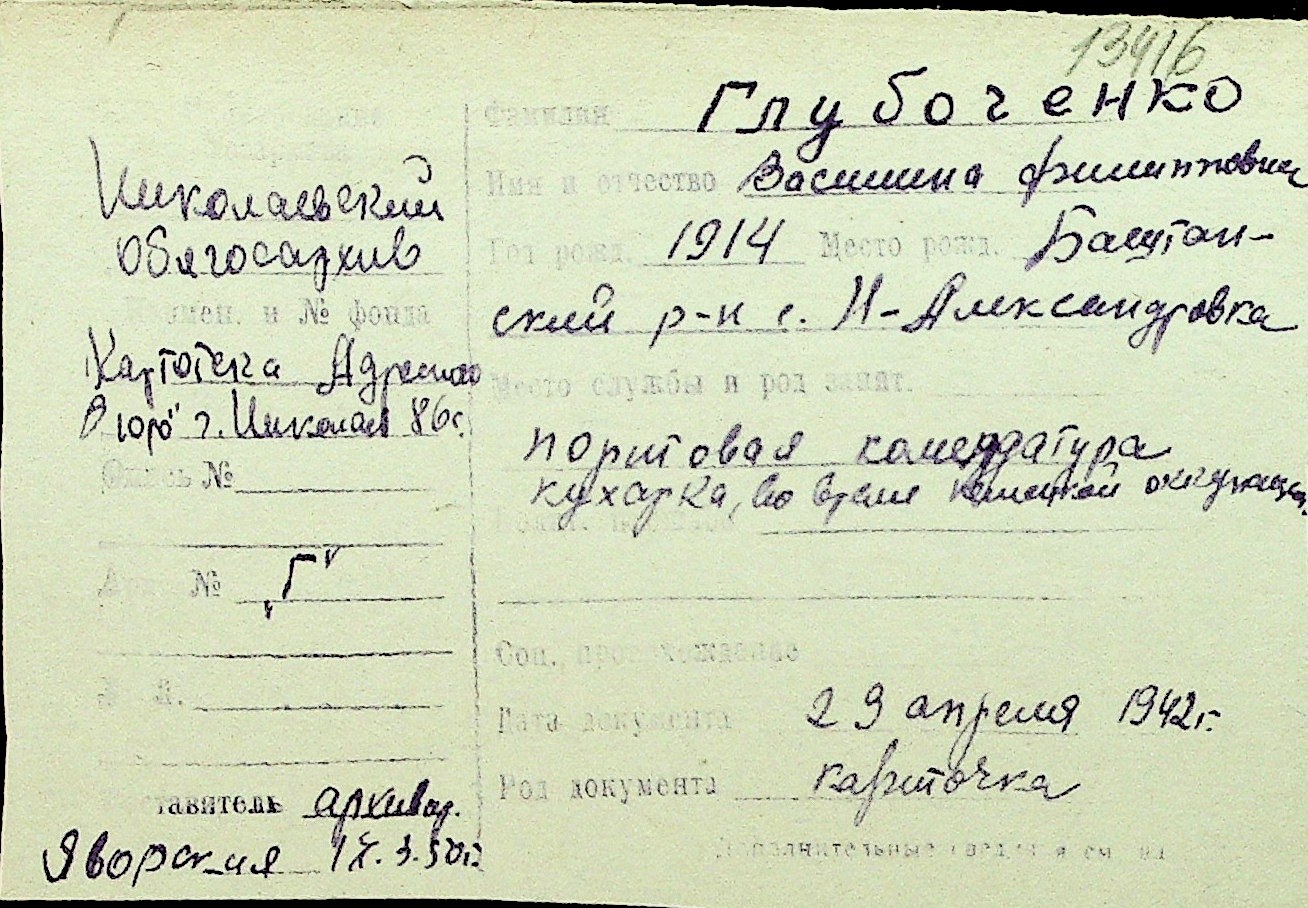 13416
Фамилия Глубоченко
Имя и отчество Василина Филипповна
Год рожд. 1914 Место рожд. Баштан-
ский р-н с. Н-Александровка
Место службы и род занят.
портовая комендатура
кухарка, во время немецкой оккупации.
Соц. происхождение
Дата документа 29 апреля 1942г.
Род документа карточка
Дополнительные сведения см. на
Николаевский
Облгосархив
Наимен. и № фонда
Картотека Адресного
Бюро г. Николаев
Опись №
Арх. № „Г"
Составитель архивар.
Яворская